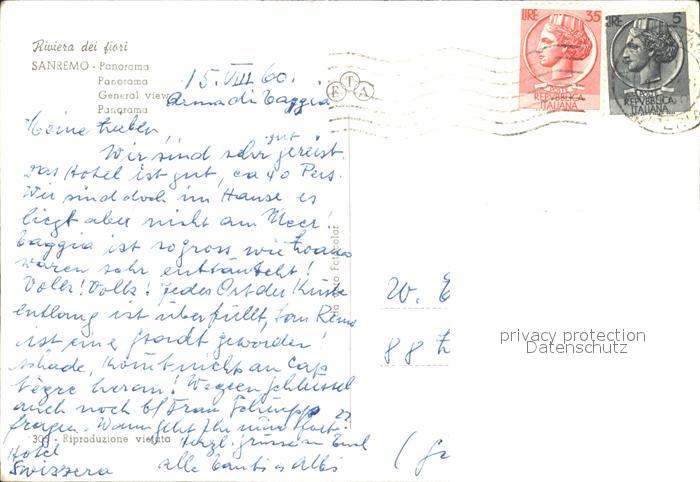 Riviera dei fiori
SANREMO - Panorama
Panorama
General view
Panorama
15. VIII 60.
Arma di Taggia
Meine Lieben,
Wir sind sehr gut gereist.
Das Hotel ist gut, ca 40 Pers.
Wir sind doch im Hause es
liegt aber nicht am Meer!
Taggia ist so gross wie
waren sehr enttäuscht!
Volk! Volk! Jedes Ort der Küste
entlang ist überfüllt, San Remo
ist eine Stadt geworden
schade, kommt nicht an Cap
Nègre heran! Wegen Schlüssel
auch noch bf Frau
fragen. Wann geht Ihr nun fort?
Herzl. Grüsse
Hotel
Svizzera
alle
309 - Riproduzione vietata
Fotocolor
ETA
LIRE 35
POSTE
REPVBBLICA
ITALIANA
LIRE 5
POSTE
REPVBBLICA
ITALIANA
W. E
88
privacy protection
Datenschutz